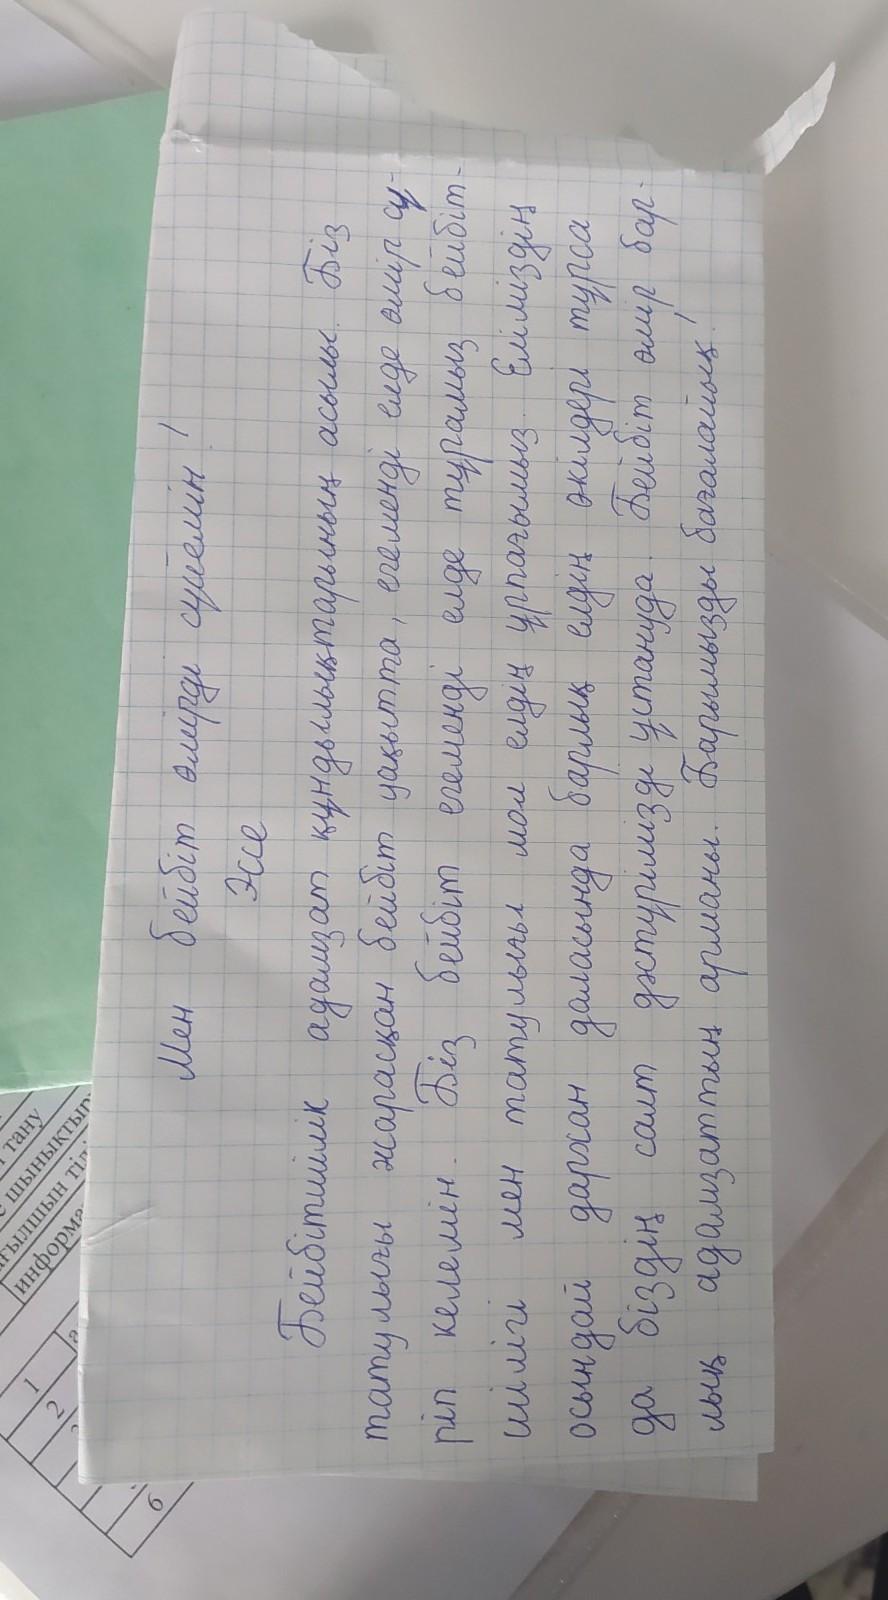 Мен бейбіт өмірді сүйемін!
Эссе
Бейбітшілік адамзат құндылықтарының асылы. Біз
татулығы жарасқан бейбіт уақытта, егеменді елде өмір сү-
ріп келемін. Біз бейбіт егеменді елде тұрамыз бейбіт-
шілігі мен татулығы мол елдің ұрпағымыз. Еліміздің
осындай дархан даласында барлық елдің өкілдері тұрса
да біздің салт дәстүрімізді ұстануда. Бейбіт өмір бар-
лық адамзаттың арманы. Барымызды бағалайық!
тану
шынықтыру
ағылшын тілі
информа
1
а
2
6